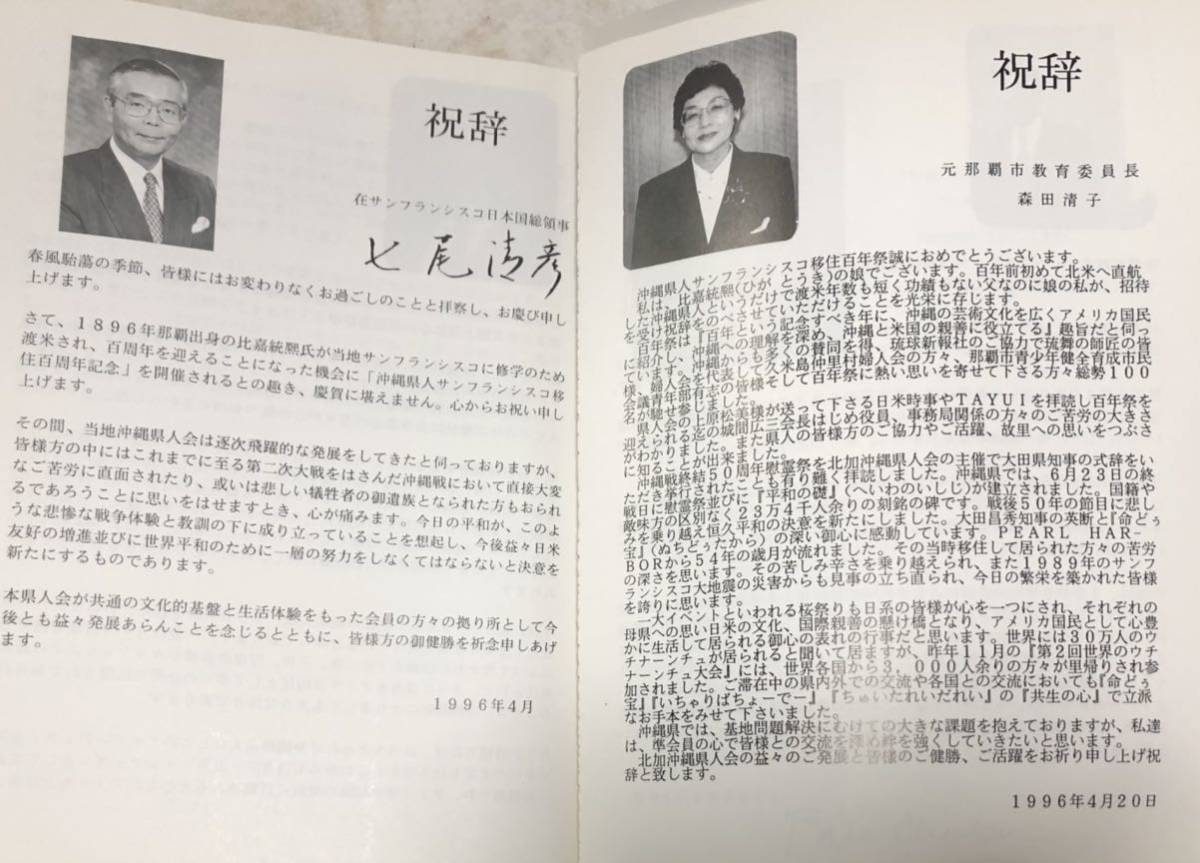 祝辞
在サンフランシスコ日本国総領事
七尾清彦
春風駘蕩の季節、皆様にはお変わりなくお過ごしのことと拝察し、お慶び申し
上げます。
さて、1896年那覇出身の比嘉統熙氏が当地サンフランシスコに修学のため
渡米され、百周年を迎えることになった機会に「沖縄県人サンフランシスコ移
住百周年記念」を開催されるとの趣き、慶賀に堪えません。心からお祝い申し
上げます。
その間、当地沖縄県人会は逐次飛躍的な発展をしてきたと伺っておりますが、
皆様方の中にはこれまでに至る第二次大戦をはさんだ沖縄戦において直接大変
なご苦労に直面されたり、或いは悲しい犠牲者の御遺族となられた方もおられ
るであろうことに思いをはせますとき、心が痛みます。今日の平和が、このよ
うな悲惨な戦争体験と教訓の下に成り立っていることを想起し、今後益々日米
友好の増進並びに世界平和のために一層の努力をしなくてはならないと決意を
新たにするものであります。
本県人会が共通の文化的基盤と生活体験をもった会員の方々の拠り所として今
後とも益々発展あらんことを念じるとともに、皆様方の御健勝を祈念申しあげ
ます。
1996年4月
祝辞
元那覇市教育委員長
森田清子
沖縄県人サンフランシスコ移住百年祭誠におめでとうございます。
私は、比嘉統熙(ひがとうき)の娘でございます。百年前初めて北米へ直航
した沖縄人というだけで渡米年数も短く功績もない父なのに娘の私が、招待
を受け祝辞をのべさせていただけることを光栄に存じます。
記念すべき年に、沖縄の芸術文化を広くアメリカ国民
理解を深め、沖縄と米国の親善に役立てる』趣旨だと伺っ
賛同を得、琉球新報社のご協力で琉舞の師匠の皆
久米島仲里村婦人会の方々、那覇市青少年健全育成市民
皆様そして百年祭に熱い思いを寄せて下さる方々総勢100
送って下さる日米時事やTAYUIを拝読し百年祭を
会長はじめ役員、事務局関係の方々のご苦労の大きさ
県人の皆様方のご協力やご活躍、故里への思いをつぶさ
慰霊祭を北加沖縄県人会の主催で大田県知事の式辞をい
有り難く拝読しました。沖縄県では、6月23日の終
『平和の礎』(へいわのいしじ)が建立されました。国籍や
23万4千人余りの刻銘の碑です。戦後50年の節目に悲し
平和の決意を新たにしました。大田昌秀知事の英断と『命どぅ
宝』(ぬちどぅたから)の深い御心に感動しています。PEARL HAR-
BORから54年の歳月が流れました。その当時移住して居られた方々の苦労
の深さを思います。その苦しみ辛さを乗り越えられ、また1989年のサンフ
ランシスコ大地震の災害からも見事の立ち直られ、今日の繁栄を築かれた皆様
を誇りに思います。
一大イベントといわれる桜祭りも日系の皆様が心を一つにされ、それぞれの
母県への思いと日米の文化、国際親善の懸け橋となり、アメリカ国民として心豊
かに生活して居られる御心の表れの行事だと思います。世界には30万人のウ
チナーンチュが居られると聞いて居ますが、昨年11月の『第2回世界のウチ
ナーンチュ大会』には、世界各国から3,000人余りの方々が里帰りされ参
加されました。ご滞在中の県内外での交流や各国との交流においても『命どぅ
宝』『いちゃりばちょーでー』『ちゅいたれいだれい』の『共生の心』で立派
なお手本をみせて下さいました。
沖縄県では、基地問題解決にむけての大きな課題を抱えておりますが、私達
は、準会員の心で皆様との交流を深め絆を強くしていきたいと思います。
北加沖縄県人会の益々のご発展と皆様のご健勝、ご活躍をお祈り申し上げ祝
辞と致します。
1996年4月20日